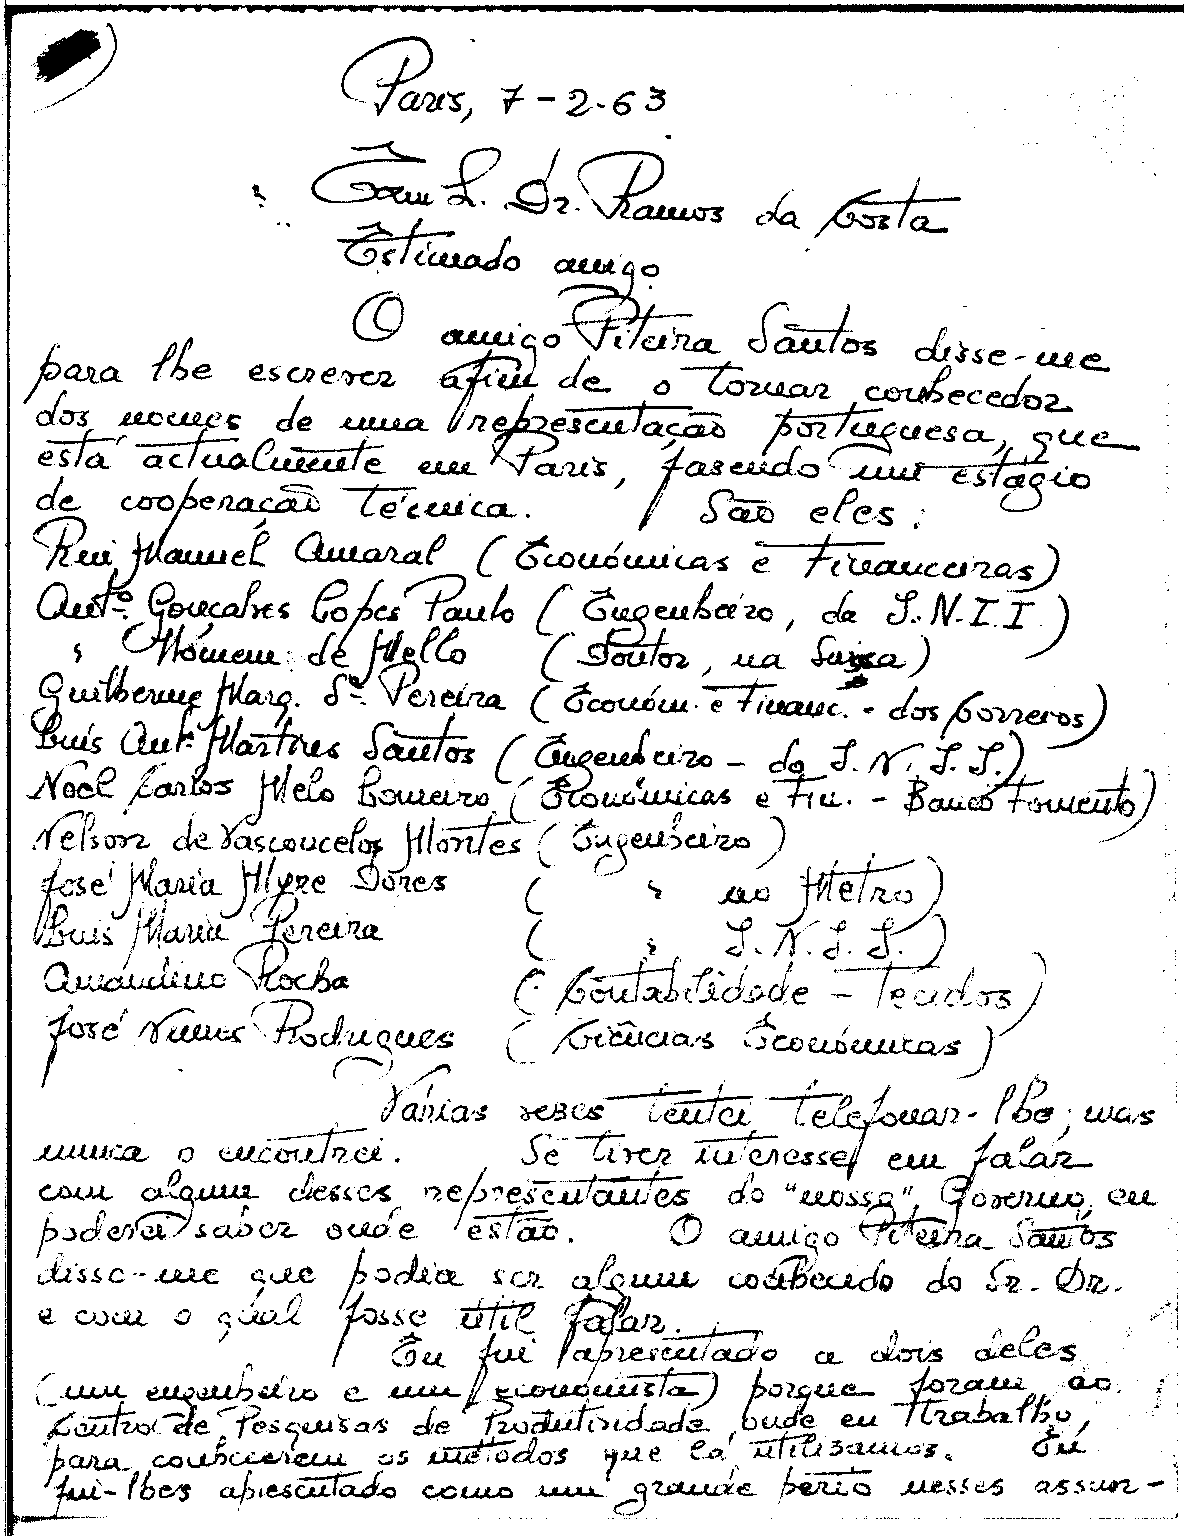 Paris, 7-2-63
Exmº. Sr. Dr. Ramos da Costa
Estimado amigo
O amigo Piteira Santos disse-me
para lhe escrever afim de o tornar conhecedor
dos nomes de uma representação portuguesa, que
está actualmente em Paris, fasendo um estágio
de cooperação técnica. São eles:
Rui Manuel Amaral (Económicas e Financeiras)
Antº. Gonçalves Lopes Paulo (Engenheiro, da I.N.I.I)
" Homem de Mello (Doutor, na Suissa)
Guilherme Marq. Sª. Pereira (Económ. e Financ. - dos Correios)
Luis Antº Martins Santos (Engenheiro - do I.N.I.I.)
Noel Carlos Melo Loureiro (Económicas e Fin. - Banco Fomento)
Nelson de Vasconcelos Montes (Engenheiro)
José Maria Myre Dores ( " no Metro)
Luis Maria Pereira ( " I.N.I.I.)
Amandino Rocha (Contabilidade - Tecidos)
José Nunes Rodrigues (Ciências Económicas)
Várias veses tentei telefonar-lhe, mas
nunca o encontrei. Se tiver interesse em falar
com algum desses representantes do "nosso" Governo, eu
poderei saber onde estão. O amigo Piteira Santos
disse-me que podia ser algum conhecido do Sr. Dr.
e com o qual fosse útil falar.
Eu fui apresentado a dois deles
(um engenheiro e um economista) porque foram ao
Centro de Pesquisas de Produtividade, onde eu trabalho,
para conhecerem os métodos que lá utilisamos. Eu
fui-lhes apresentado como um grande perito nesses assun-